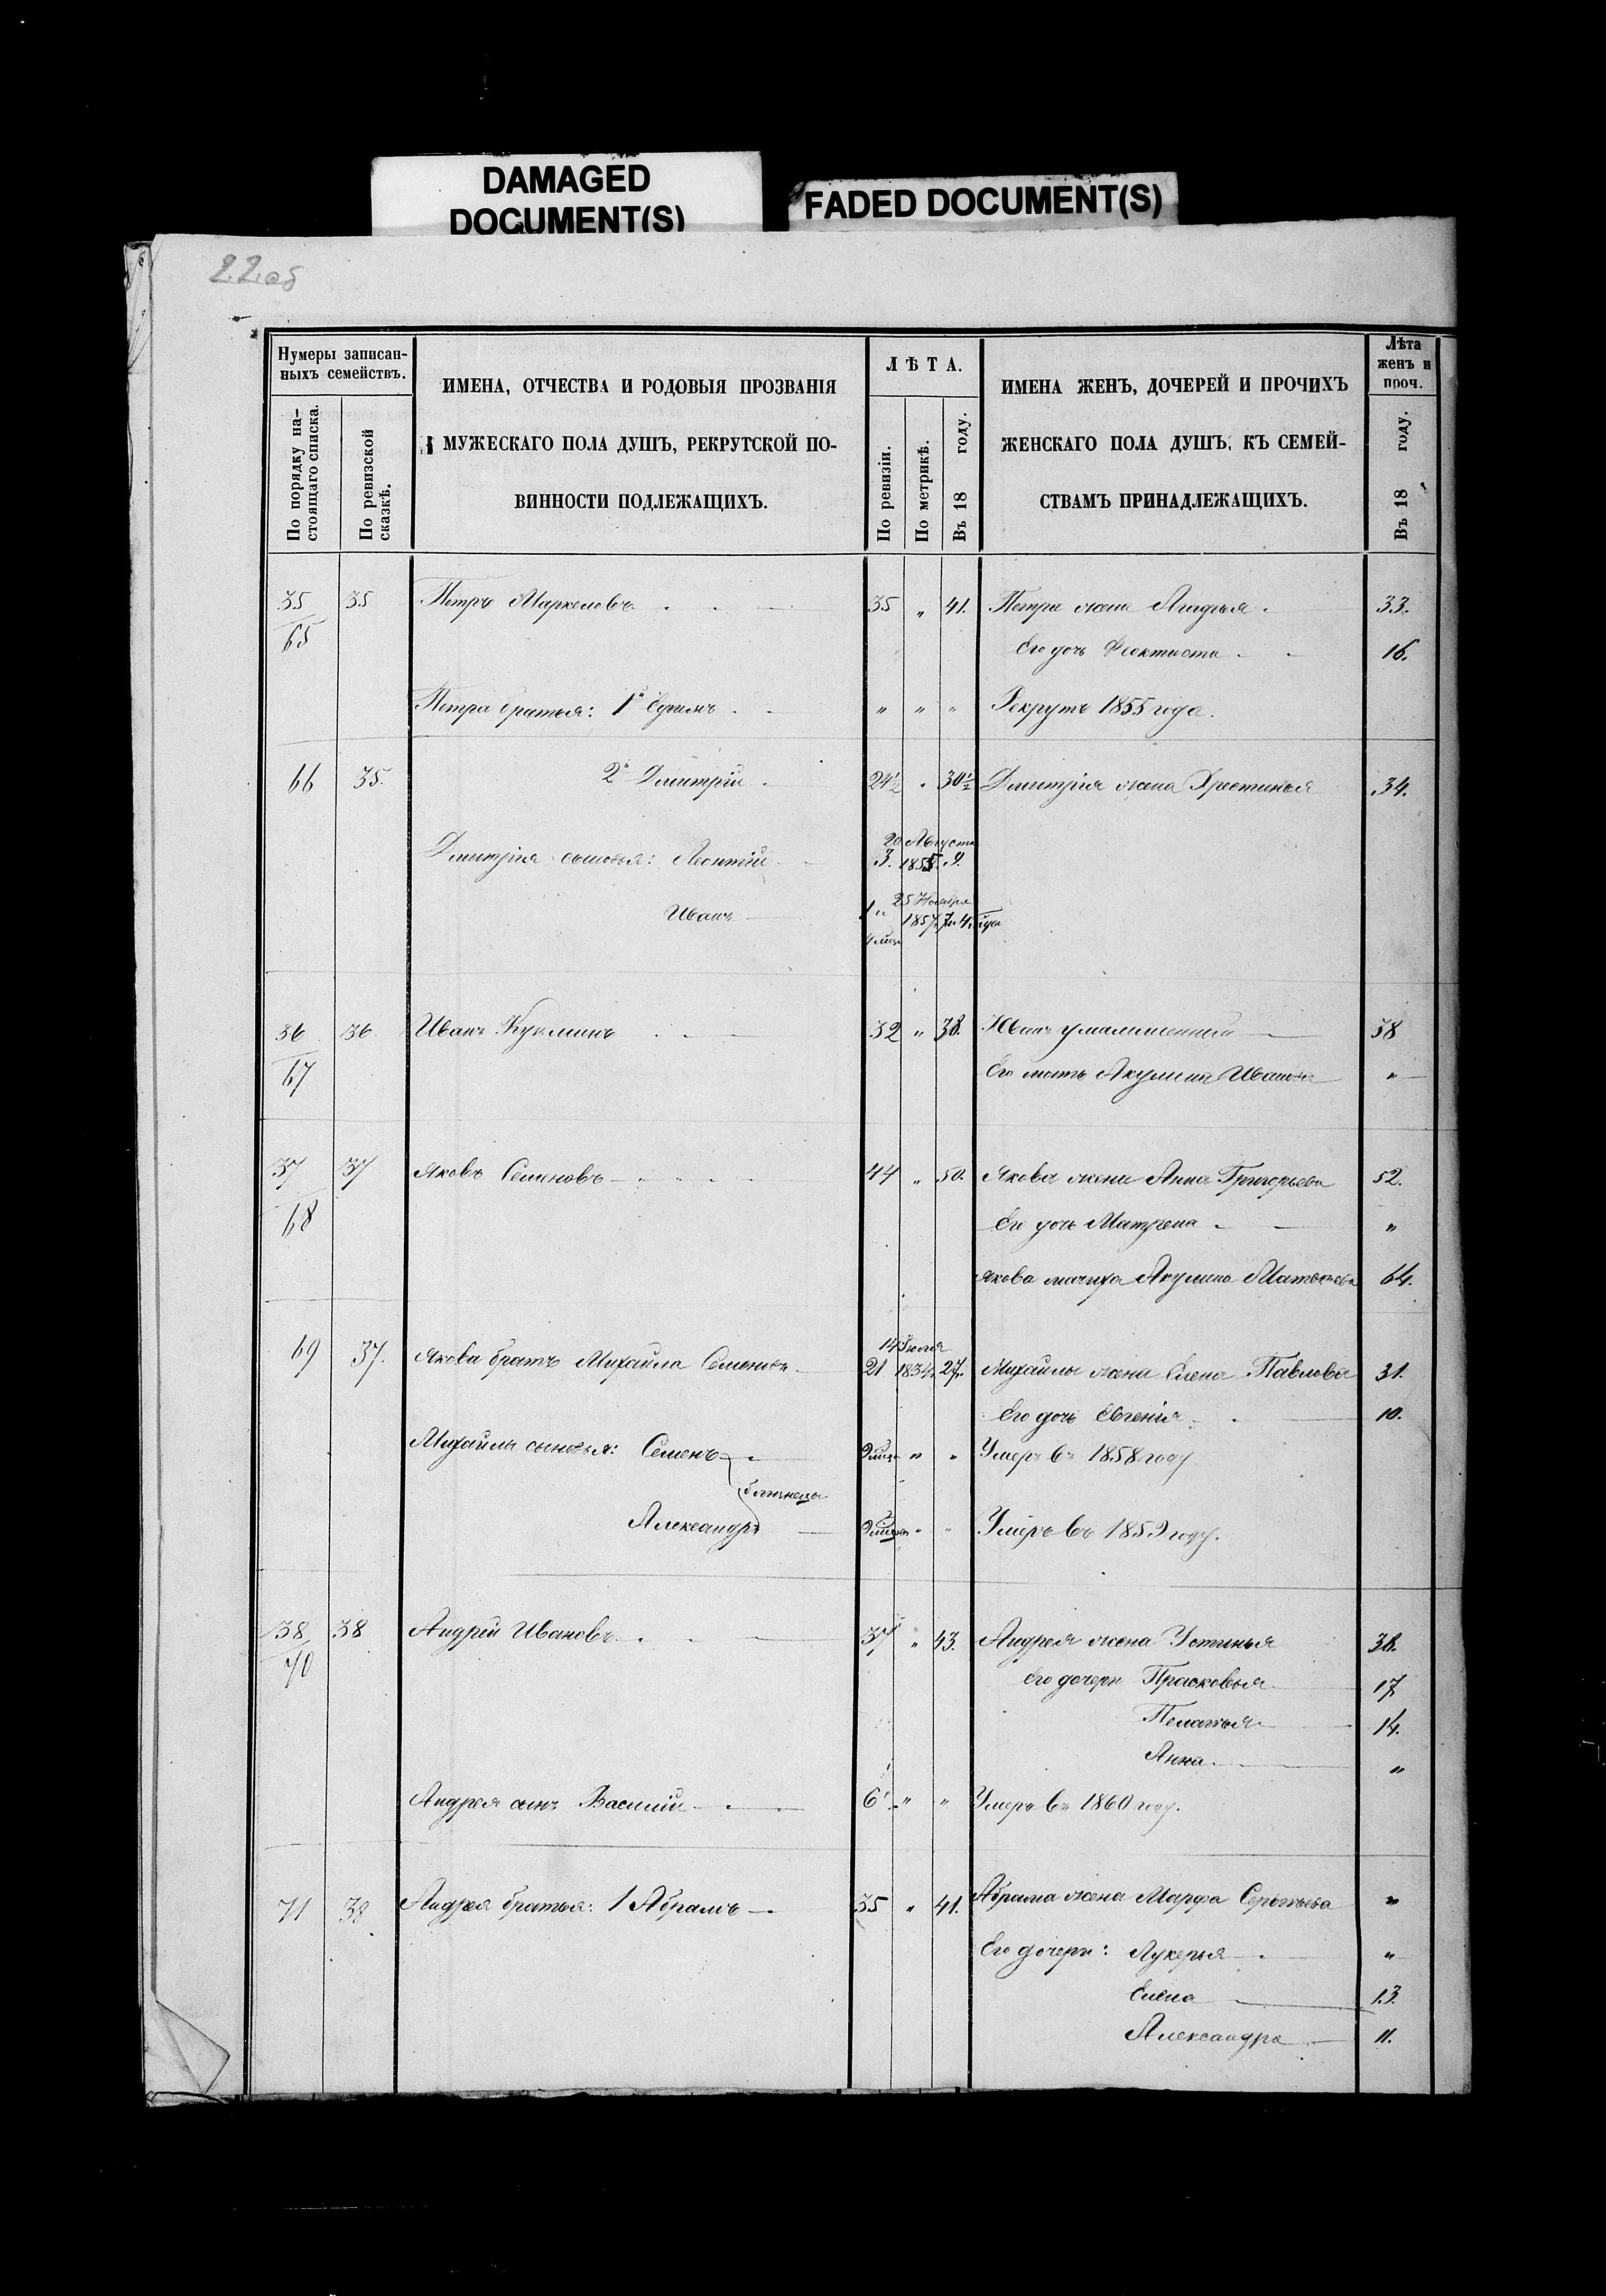 DAMAGED
DOCUMENT(S)
FADED DOCUMENT(S)
22об
Нумеры записан-
ныхъ семействъ.
По порядку на-
стоящаго списка.
По ревизской
сказкѣ.
ИМЕНА, ОТЧЕСТВА И РОДОВЫЯ ПРОЗВАНІЯ
МУЖЕСКАГО ПОЛА ДУШЪ, РЕКРУТСКОЙ ПО-
ВИННОСТИ ПОДЛЕЖАЩИХЪ.
ЛѢТА.
По ревизіи.
По метрикѣ.
Въ 18 году.
ИМЕНА ЖЕНЪ, ДОЧЕРЕЙ И ПРОЧИХЪ
ЖЕНСКАГО ПОЛА ДУШЪ, КЪ СЕМЕЙ-
СТВАМЪ ПРИНАДЛЕЖАЩИХЪ.
Лѣта
женъ и
проч.
Въ 18 году.
35 35 Петръ Маркеловъ 35 " 41. Петра жена Агафья 33.
65
Его дочь Феоктиста 16.
Петра братья: 1й " " " Рекрутъ 1855 года.
66 35. 2й Дмитрій 24½ " 30½ Дмитрія жена Хрестинья 34.
20 Августа
Дмитрія сыновья: Леонтій 3. 1855. 9.
25 Ноября
Иванъ 1857.
36 36 Иванъ 32 " 38. Иванъ умалишенный 58
67
Его мать Акулина Иванова "
37 37 Яковъ Семеновъ 44 " 50. Якова жена Анна Григорьева 52.
68
Его дочь Матрена "
Якова мачиха Акулина Матвѣева 64.
14 Іюля
69 37. Якова братъ Михайла Семеновъ 21 1834. 27. Михайлы жена Елена Павлова 31.
Его дочь Евгенія 10.
Михайлы сыновья: Семенъ 9 мѣся " " Умеръ въ 1858 году
близнецы
Александръ 9 мѣся " " Умеръ въ 1859 году.
38 38 Андрей Ивановъ 37 " 43. Андрея жена Устинья 38.
70
Его дочери Прасковья 17
Пелагья 14.
Анна "
Андрея сынъ Василій 6 " " Умеръ въ 1860 году.
71 38 Андрея братья: 1 Абрамъ 35 " 41. Абрама жена Марфа Сергѣева "
Его дочери: Лукерья "
Елена 13.
Александра 11.